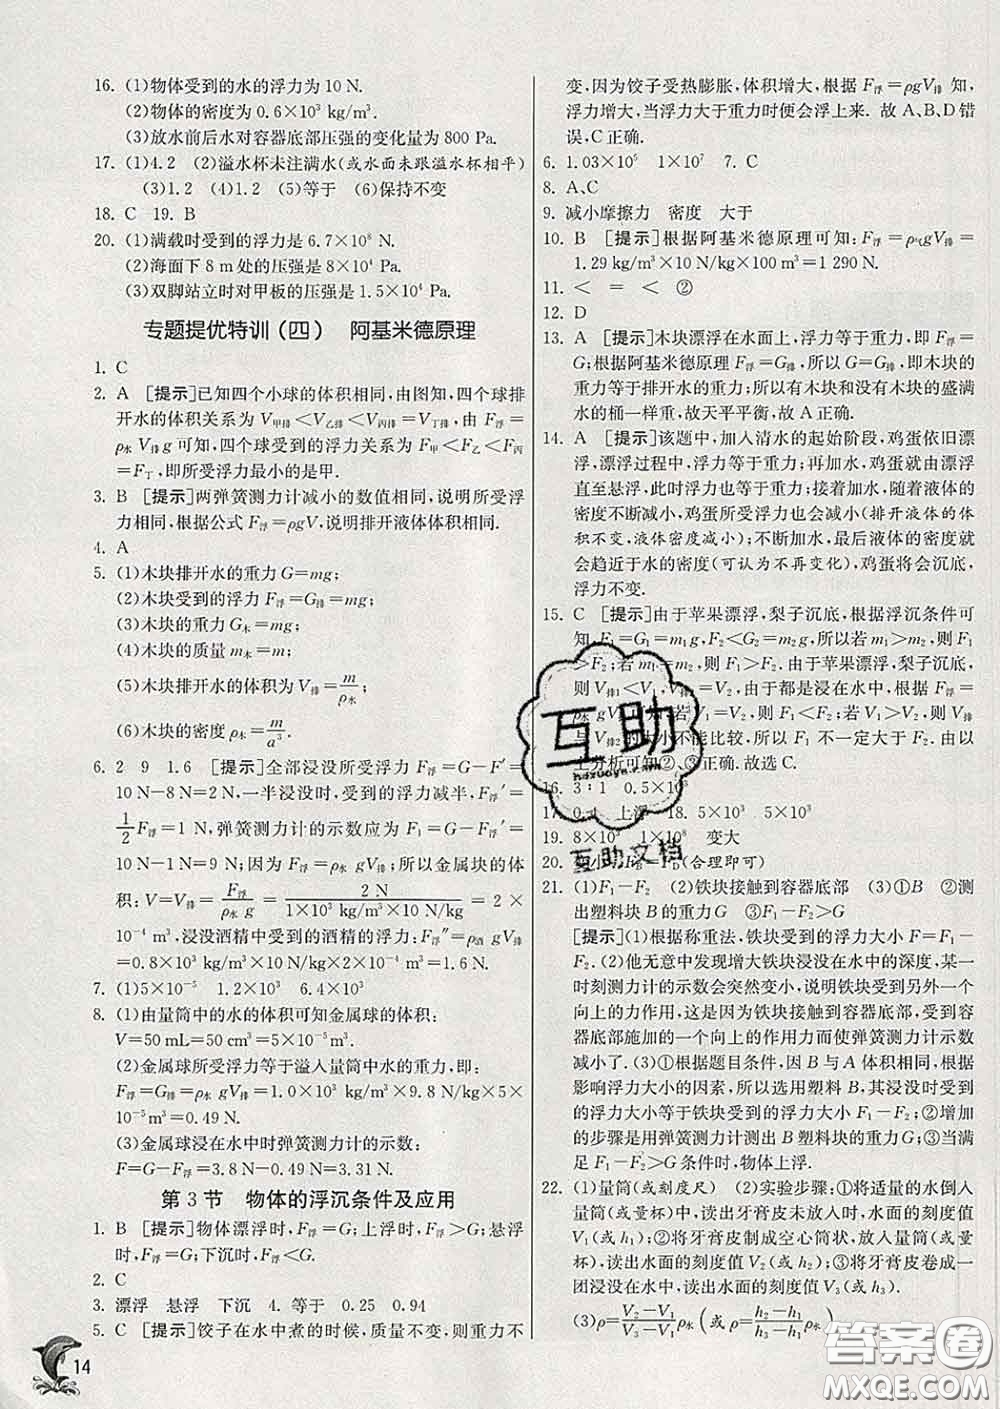 16. (1)物体受到的水的浮力为 10 N.
(2)物体的密度为 0.6×10³ kg/m³.
(3)放水前后水对容器底部压强的变化量为 800 Pa.
17. (1)4.2 (2)溢水杯未注满水(或水面未跟溢水杯相平)
(3)1.2 (4)1.2 (5)等于 (6)保持不变
18. C 19. B
20. (1)满载时受到的浮力是 6.7×10⁸ N.
(2)海面下 8 m 处的压强是 8×10⁴ Pa.
(3)双脚站立时对甲板的压强是 1.5×10⁴ Pa.
专题提优特训(四) 阿基米德原理
1. C
2. A [提示]已知四个小球的体积相同,由图知,四个球排
开水的体积关系为 V甲排<V乙排<V丙排=V丁排,由 F浮=
ρ水 V排g 可知,四个球受到的浮力关系为 F甲<F乙<F丙
=F丁,即所受浮力最小的是甲.
3. B [提示]两弹簧测力计减小的数值相同,说明所受浮
力相同,根据公式 F浮=ρgV,说明排开液体体积相同.
4. A
5. (1)木块排开水的重力 G=mg;
(2)木块受到的浮力 F浮=G排=mg;
(3)木块的重力 G木=mg;
(4)木块的质量 m木=m;
(5)木块排开水的体积为 V排=m/ρ水;
(6)木块的密度 ρ木=m/a³.
6. 2 9 1.6 [提示]全部浸没所受浮力 F浮=G-F′=
10 N-8 N=2 N,一半浸没时,受到的浮力减半,F浮′=
1/2 F浮=1 N,弹簧测力计的示数应为 F₁=G-F浮′=
10 N-1 N=9 N;因为 F浮=ρ水 gV排;所以金属块的体
积:V=F浮/(ρ水 g)=2 N/(1×10³ kg/m³×10 N/kg)=2×
10⁻⁴ m³,浸没酒精中受到的酒精的浮力:F浮″=ρ酒 gV排
=0.8×10³ kg/m³×10 N/kg×2×10⁻⁴ m³=1.6 N.
7. (1)5×10⁻⁵ 1.2×10³ 6.4×10³
8. (1)由量筒中的水的体积可知金属球的体积:
V=50 mL=50 cm³=5×10⁻⁵ m³.
(2)金属球所受浮力等于溢入量筒中水的重力,即:
F浮=G排=ρ水 gV排=1.0×10³ kg/m³×9.8 N/kg×5×
10⁻⁵ m³=0.49 N.
(3)金属球浸在水中时弹簧测力计的示数:
F=G-F浮=3.8 N-0.49 N=3.31 N.
第 3 节 物体的浮沉条件及应用
1. B [提示]物体漂浮时,F浮=G;上浮时,F浮>G;悬浮
时,F浮=G;下沉时,F浮<G.
2. C
3. 漂浮 悬浮 下沉 4. 等于 0.25 0.94
5. C [提示]饺子在水中煮的时候,质量不变,则重力不
变,因为饺子受热膨胀,体积增大,根据 F浮=ρgV排 知,
浮力增大,当浮力大于重力时便会浮上来. 故 A、B、D 错
误,C 正确.
6. 1.03×10⁵ 1×10⁷ 7. C
8. A、C
9. 减小摩擦力 密度 大于
10. B [提示]根据阿基米德原理可知:F浮=ρ气gV排=
1.29 kg/m³×10 N/kg×100 m³=1 290 N.
11. < = < ②
12. D
13. A [提示]木块漂浮在水面上,浮力等于重力,即 F浮=
G;根据阿基米德原理 F浮=G排,所以 G=G排,即木块的
重力等于排开水的重力;所以有木块和没有木块的盛满
水的桶一样重,故天平平衡,故 A 正确.
14. A [提示]该题中,加入清水的起始阶段,鸡蛋依旧漂
浮,漂浮过程中,浮力等于重力;再加水,鸡蛋就由漂浮
直至悬浮,此时浮力也等于重力;接着加水,随着液体的
密度不断减小,鸡蛋所受浮力也减小(排开液体的体
积不变,液体密度减小);不断加水,最后液体的密度就
会趋近于水的密度(可认为不再变化),鸡蛋将会沉底,
浮力不变.
15. C [提示]由于苹果漂浮,梨子沉底,根据浮沉条件可
知,F₁=G₁=m₁g,F₂<G₂=m₂g,所以若 m₁>m₂,则 F₁
>F₂;若 m₁=m₂,则 F₁>F₂. 由于苹果漂浮,梨子沉底,
则 V排₁<V₁,V排₂=V₂,由于都是浸在水中,根据 F浮=
ρ水 gV排 可知若 V₁=V₂,则 F₁<F₂;若 V₁>V₂,则 V排₁
与 V排₂的大小不能比较,所以 F₁ 不一定大于 F₂. 由以
上分析可知②、③正确.故选 C.
16. 3∶1 0.5×10³
17. 0.4 上浮 18. 5×10³
19. 8×10³ 1×10⁸ 变大
20. 小 =F(合理即可)
21. (1)F₁-F₂ (2)铁块接触到容器底部 (3)①B ②测
出塑料块 B 的重力 G ③F₁-F₂>G
[提示](1)根据称重法,铁块受到的浮力大小 F=F₁-
F₂. (2)他无意中发现增大铁块浸没在水中的深度,某一
时刻测力计的示数会突然变小,说明此时受到另外一个
向上的力的作用,这是因为铁块接触到容器底部,受到容
器底部施加的一个向上的作用力而使弹簧测力计示数
减小了. (3)①根据题目条件,因 B 与 A 体积相同,根据
影响浮力大小的因素,所以选用塑料 B,其浸没时受到
的浮力大小等于铁块受到的浮力大小 F₁-F₂;②增加
的步骤是用弹簧测力计测出 B 塑料块的重力 G;③当满
足 F₁-F₂>G 条件时,物体上浮.
22. (1)量筒(或刻度尺) (2)实验步骤:①将适量的水倒入
量杯中,读出牙膏皮未放入时,水面的刻度值
V₁(或 h₁);②将牙膏皮制成空心筒状,放入量筒(或量
杯),读出水面的刻度值 V₂(或 h₂);③将牙膏皮卷成一
团浸没在水中,读出水面的刻度值 V₃(或 h₃).
(3)ρ=(V₂-V₁)/(V₃-V₁)ρ水(或ρ=(h₂-h₁)/(h₃-h₁)ρ水)
互助
互助文档
答案圈
MXQE.COM
14